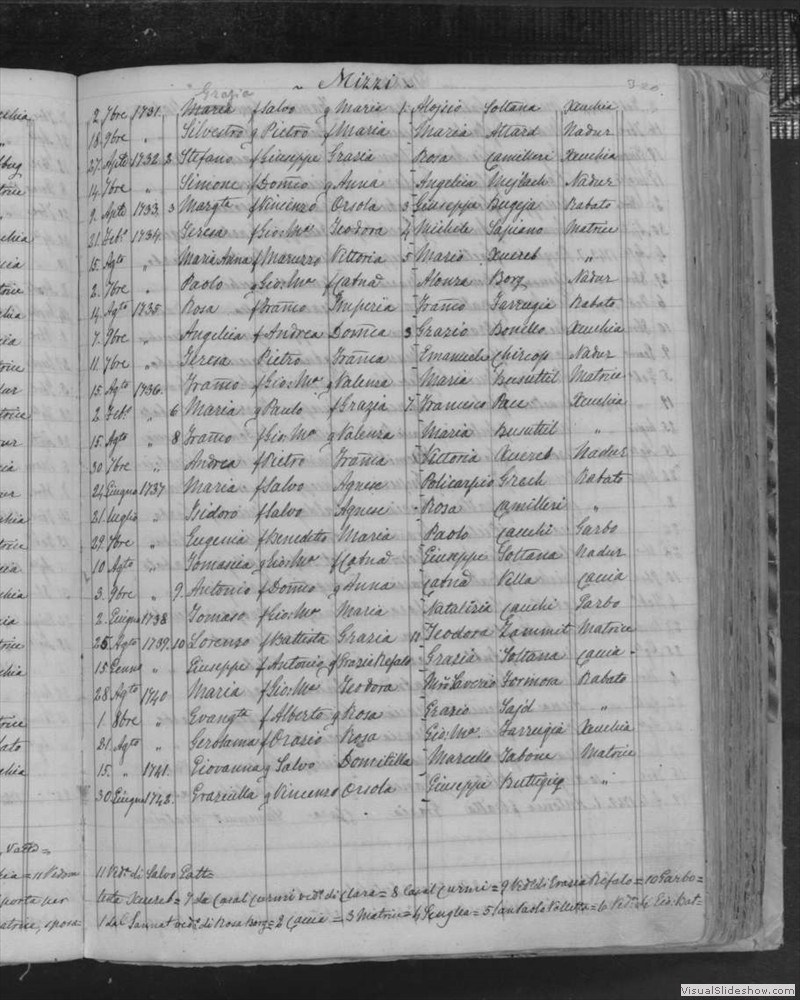 Grazia
Mizzi
2. 7bre 1731. Maria f Salvo g Maria 1. Aloisio Soltana Xeuchia
18. 9bre " Silvestro g Pietro f Maria Maria Attard Nadur
27. Aple 1732. 2 Stefano f Giuseppe Grazia Rosa Camilleri Xeuchia
14. 7bre " Simone f Domco g Anna Angelica Mejlach Nadur
9. Aple 1733. 3 Margta f Vincenzo Orsola 3 Giuseppe Bugeja Rabato
21. Febo 1734. Teresa f Gio: Ma Teodora 4 Michele Sapiano Matrice
15. Agto " Maria Anna f Maruzzo Vittoria 5 Mario Xuereb "
2. 7bre " Paolo g Gio: Ma f Catna Alonza Borg Nadur
14. Agto 1735 Rosa f Franco Imperia Franco Farrugia Rabato
7. 9bre " Angelica f Andrea Domca 3 Grazio Bonello Xeuchia
11. 7bre " Teresa Pietro Franca Emanuele Chircop Nadur
15. Agto 1736. Franco f Gio: Ma g Valenza Maria Busuttil Matrice
2. Febo " 6 Maria g Paulo f Grazia 7. Francesco Pace Xeuchia
15. Agto " 8 Franco f Gio: Ma g Valenza Maria Busuttil "
30. 7bre " Andrea f Pietro Franca Vittoria Xuereb Nadur
24. Giugno 1737 Maria f Salvo Agnese Policarpio Grech Rabato
21. Luglio " Isidoro f Salvo Agnese Rosa Camilleri "
29. 7bre " Eugenia f Benedetto Maria Paolo Cauchi Garbo
10. Agto " Tomasica g Gio: Ma f Catna Giuseppe Soltana Nadur
3. 9bre " 9. Antonio f Domco g Anna Catna Vella Caccia
2. Giugno 1738 Tomaso f Gio: Ma Maria Natalizia Cauchi Garbo
25. Agto 1739. 10 Lorenzo f Battista Grazia 11. Teodora Zammit Matrice
15 Genno " Giuseppe f Antonio g Grazia Refalo Grazia Soltana Caccia
28. Agto 1740 Maria f Gio: Ma Teodora Mro Saverio Formosa Rabato
1. 8bre " Evangta f Alberto g Rosa Grazio Sajd "
21. Agto " Gerolama f Orazio Rosa Gio: Ma Farrugia Xeuchia
15. " 1741. Giovanna g Salvo Domitilla Marcello Tabone Matrice
30 Giugno 1742. Graziulla g Vincenzo Orsola Giuseppe Buttigieg "
11 Vedo di Salvo Gatt=
tista Xuereb= 7 da Casal Curmi vedo di Clara= 8 Casal Curmi= 9 Vedo di Grazia Refalo= 10 Garbo=
1 dal Sannat vedo di Rosa Borg= 2 Caccia= 3 Matrice= 4 Senglea= 5 San Paolo Valletta= 6 Vedo di Gio: Bat=
VisualSlideshow.com